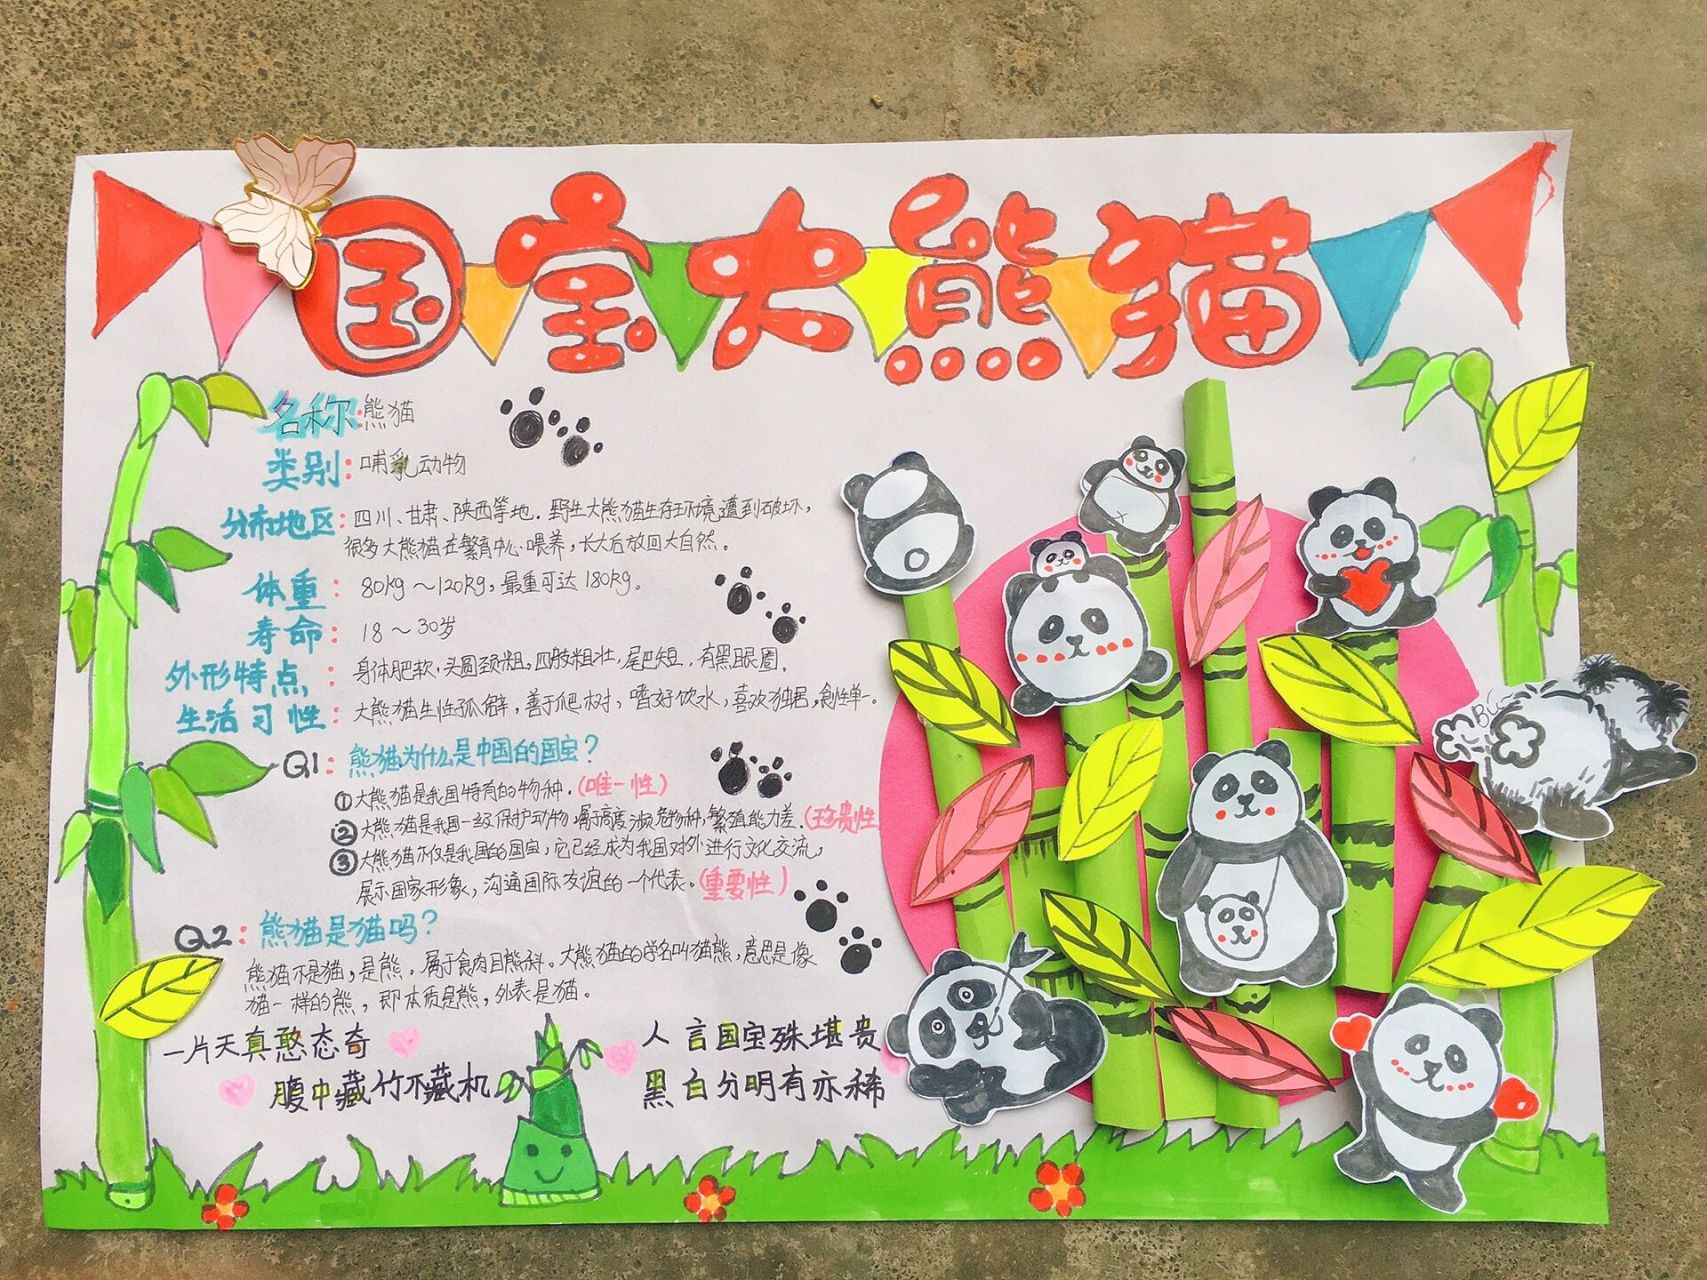 国宝大熊猫
名称:熊猫
类别:哺乳动物
分布地区:四川、甘肃、陕西等地.野生大熊猫生存环境遭到破坏,
很多大熊猫在繁育中心喂养,长大后放回大自然。
体重:80kg～120kg,最重可达180kg。
寿命:18～30岁
外形特点:身体肥软,头圆颈粗,四肢粗壮,尾巴短,有黑眼圈.
生活习性:大熊猫生性孤僻,善于爬树,嗜好饮水,喜欢独居,食性单一.
Q1:熊猫为什么是中国的国宝?
①大熊猫是我国特有的物种.(唯一性)
②大熊猫是我国一级保护动物,属于高度濒危物种,繁殖能力差.(珍贵性
③大熊猫不仅是我国的国宝,它已经成为我国对外进行文化交流,
展示国家形象,沟通国际友谊的一个代表。(重要性)
Q2:熊猫是猫吗?
熊猫不是猫,是熊.属于食肉目熊科.大熊猫的学名叫猫熊,意思是像
猫一样的熊,即本质是熊,外表是猫。
一片天真憨态奇
腹中藏竹不藏机
人言国宝殊堪贵
黑白分明有亦稀